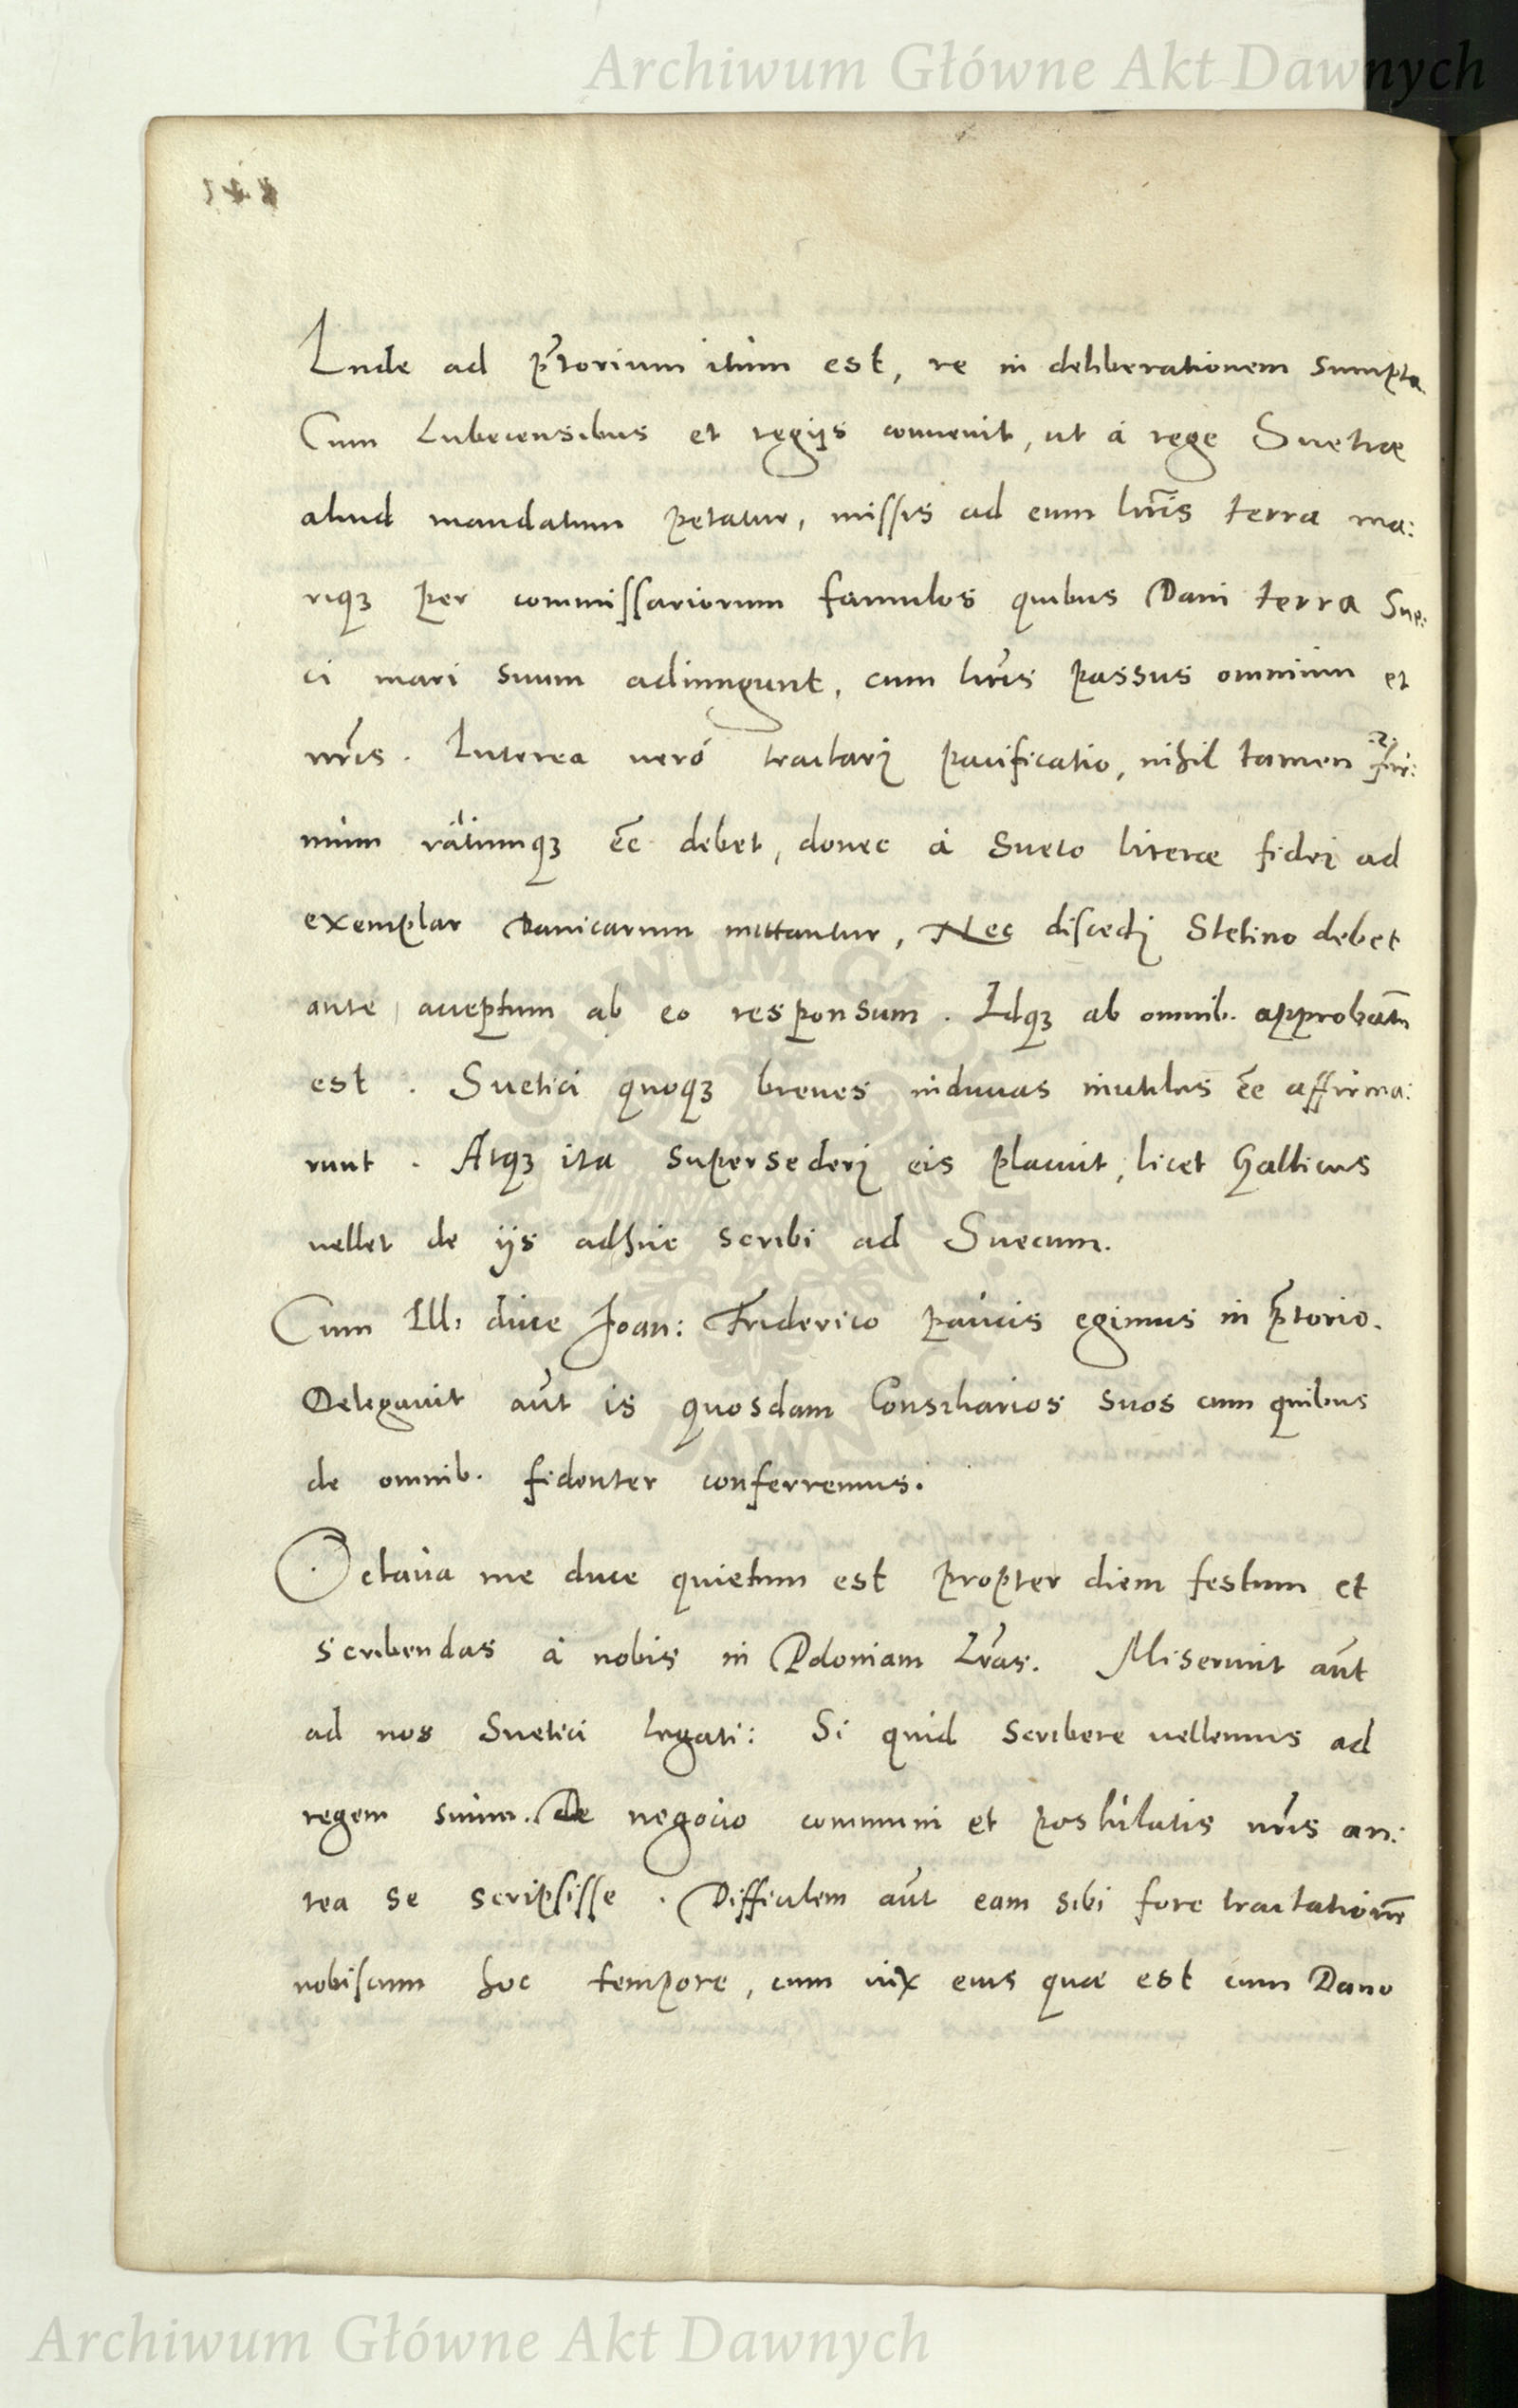 Archiwum Główne Akt Dawnych
Inde ad p̃torium itum est, re in deliberationem sumpta
Cum Lubecensibus et regijs conuenit, ut á rege Suetiæ
aliud mandatum petatur, missis ad eum lr̃is terra ma:
riqꝫ per commissariorum famulos quibus Dani terra Sue:
ci mari suum adiungunt, cum lr̃is passus omnium et
nr̃is. Interea veró tractari pacificatio, nihil tamen fir:
mum ratumqꝫ eẽ debet, donec á Sueto literæ fidei ad
exemplar Danicarum mittantur, Nec discedi Stetino debet
ante acceptum ab eo responsum. Idqꝫ ab omnib. approbatũ
est. Suetici quoqꝫ breues inducias inutiles eẽ affirma:
runt. Atqꝫ ita supersederi eis placuit, licet Gallicus
vellet de ijs adhuc scribi ad Suecum.
Cum Ill: duce Joan: Friderico paucis egimus in p̃torio.
Delegauit aũt is quosdam Consiliarios suos cum quibus
de omnib. fidenter conferremus.
Octaua me duce quietum est propter diem festum et
scribendas á nobis in Poloniam lr̃as. Miserunt aũt
ad nos Suetici legati: Si quid scribere vellemus ad
regem suum. De negocio communi et postulatis nr̃is an:
tea se scripsisse. Difficilem aũt eam sibi fore tractationẽ
nobiscum hoc tempore, cum vix eius quæ est cum Dano
Archiwum Główne Akt Dawnych